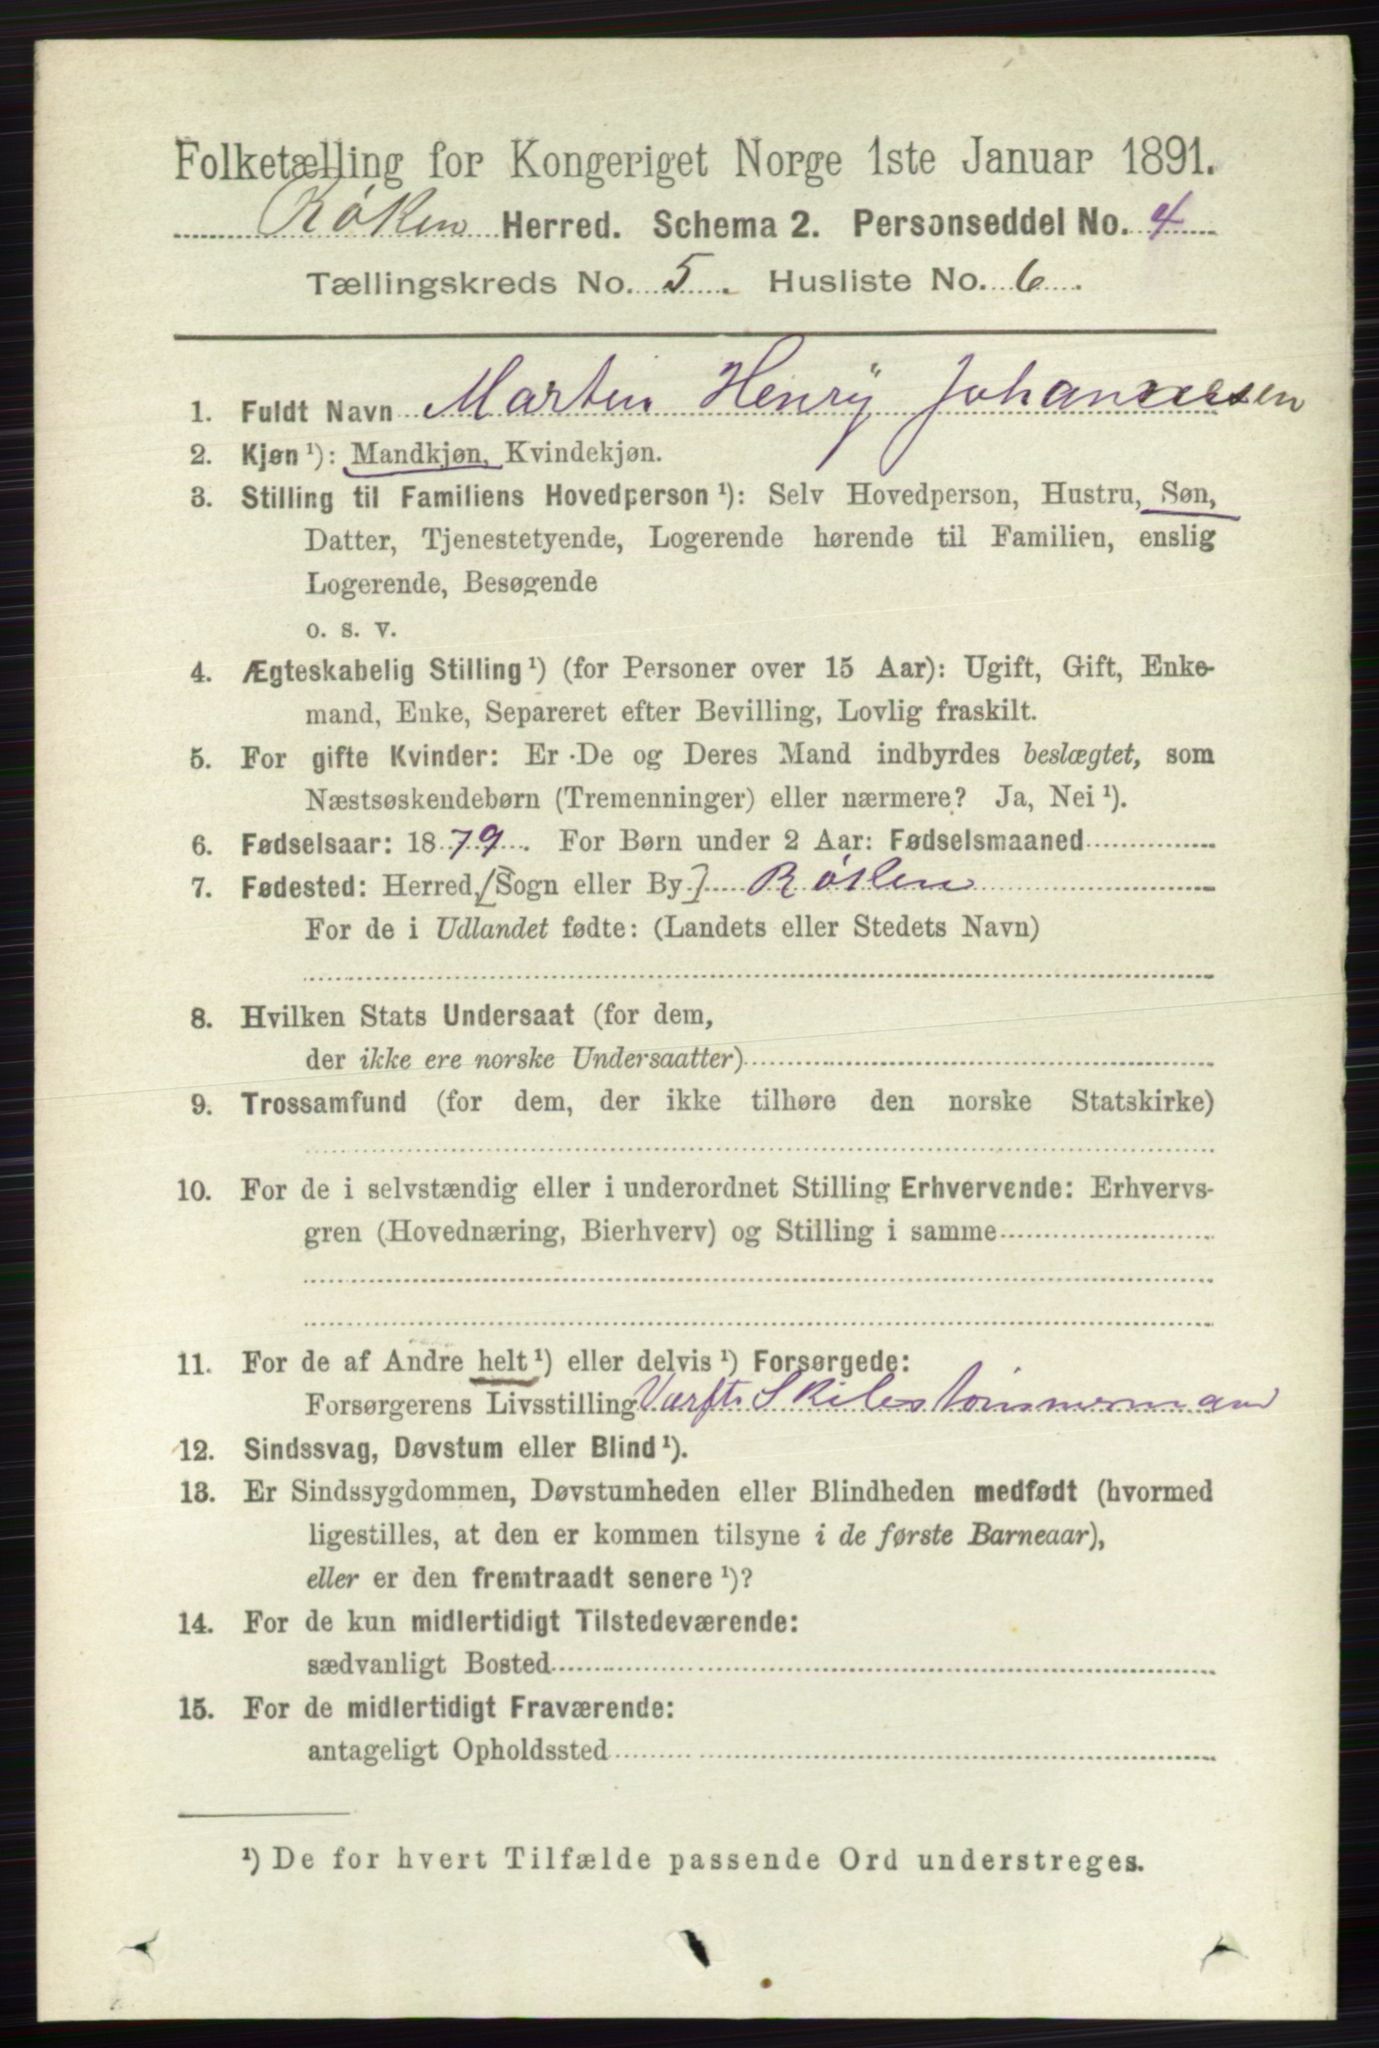 Folketælling for Kongeriget Norge 1ste Januar 1891.
Røken Herred. Schema 2. Personseddel No. 4
Tællingskreds No. 5. Husliste No. 6.
1. Fuldt Navn Martin Henry Johannessen
2. Kjøn ¹): Mandkjøn, Kvindekjøn.
3. Stilling til Familiens Hovedperson ¹): Selv Hovedperson, Hustru, Søn,
Datter, Tjenestetyende, Logerende hørende til Familien, enslig
Logerende, Besøgende
o. s. v.
4. Ægteskabelig Stilling ¹) (for Personer over 15 Aar): Ugift, Gift, Enke-
mand, Enke, Separeret efter Bevilling, Lovlig fraskilt.
5. For gifte Kvinder: Er De og Deres Mand indbyrdes beslægtet, som
Næstsøskendebørn (Tremenninger) eller nærmere? Ja, Nei ¹).
6. Fødselsaar: 1879. For Børn under 2 Aar: Fødselsmaaned
7. Fødested: Herred, [Sogn eller By] Røken
For de i Udlandet fødte: (Landets eller Stedets Navn)
8. Hvilken Stats Undersaat (for dem,
der ikke ere norske Undersaatter)
9. Trossamfund (for dem, der ikke tilhøre den norske Statskirke)
10. For de i selvstændig eller i underordnet Stilling Erhvervende: Erhvervs-
gren (Hovednæring, Bierhverv) og Stilling i samme
11. For de af Andre helt ¹) eller delvis ¹) Forsørgede:
Forsørgerens Livsstilling
12. Sindssvag, Døvstum eller Blind ¹).
13. Er Sindssygdommen, Døvstumheden eller Blindheden medfødt (hvormed
ligestilles, at den er kommen tilsyne i de første Barneaar),
eller er den fremtraadt senere ¹)?
14. For de kun midlertidigt Tilstedeværende:
sædvanligt Bosted
15. For de midlertidigt Fraværende:
antageligt Opholdssted
¹) De for hvert Tilfælde passende Ord understreges.